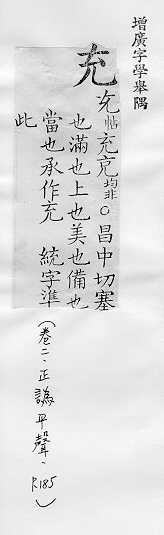 增廣字學舉隅
充
帖 均非○昌中切塞
也滿也上也美也備也
當也承作充 統字準
此
(卷二、正譌平聲、P.185)